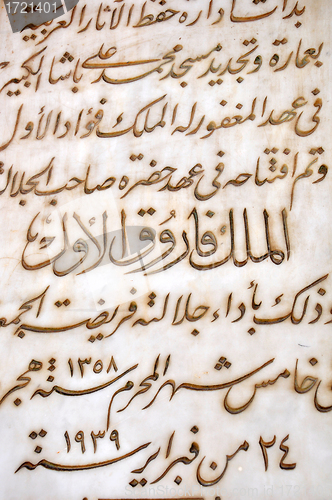 بدأت ادارة حفظ الآثار العربية
بعمارة وتجديد مسجد محمد على باشا الكبير
فى عهد المغفور له الملك فؤاد الأول
وتم افتتاحه فى عهد حضرة صاحب الجلالة
الملك فاروق الأول
وذلك بأداء جلالته فريضة الجمعة
خامس شهر المحرم سنة ١٣٥٨ هجرية
٢٤ من فبراير سنة ١٩٣٩
#1721401